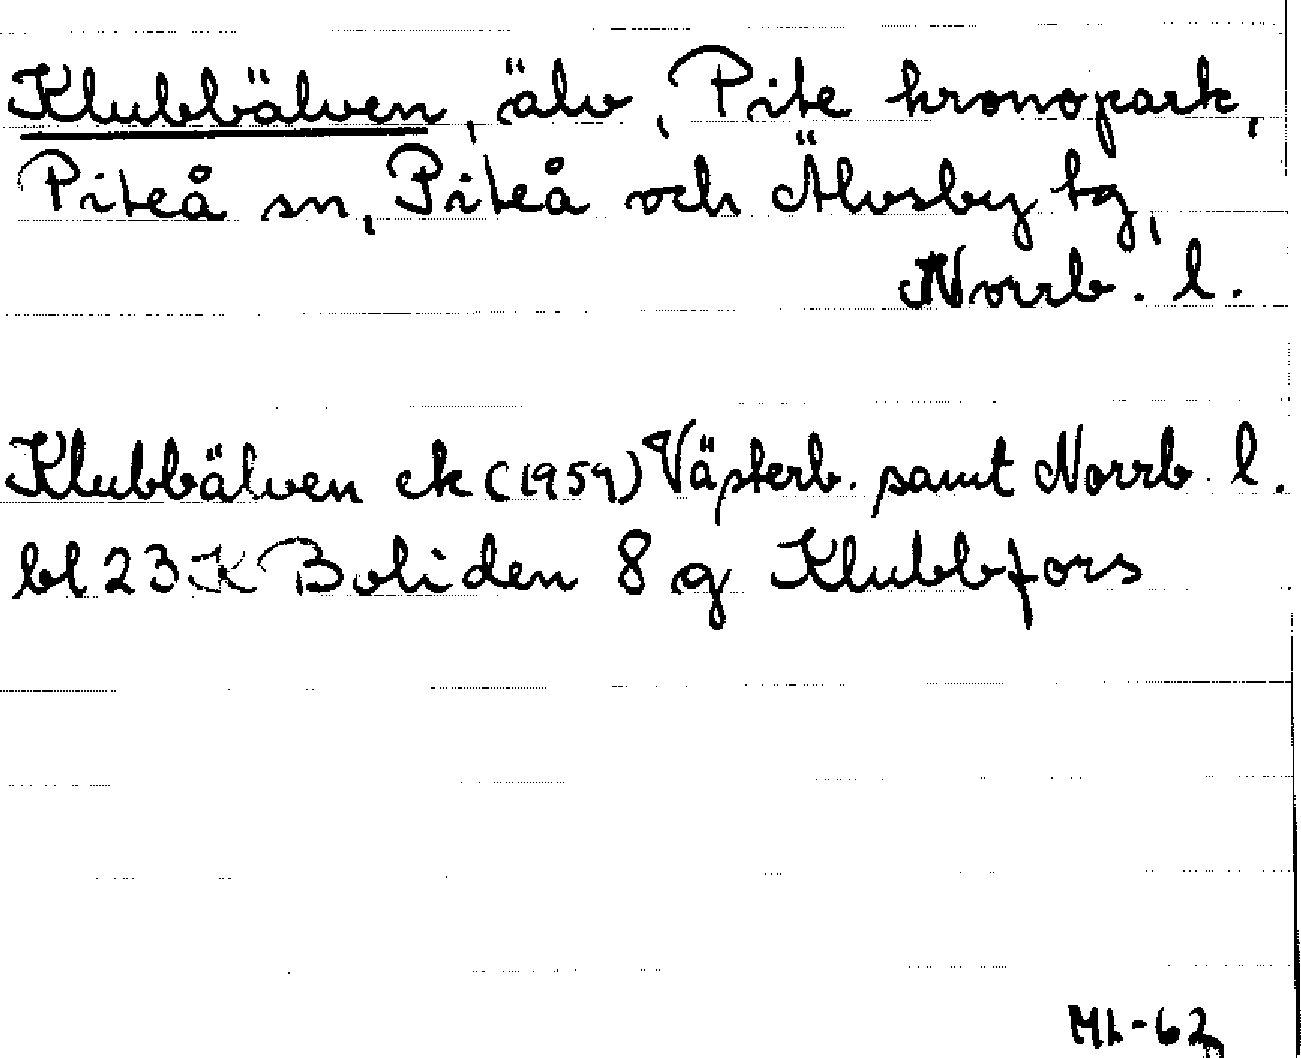 Klubbälven, älv, Pite kronopark,
Piteå sn, Piteå och Älvsby tg,
Norrb. l.
Klubbälven ek (1959) Västerb. samt Norrb. l.
bl 23 K Boliden 8 g Klubbfors
ML-62